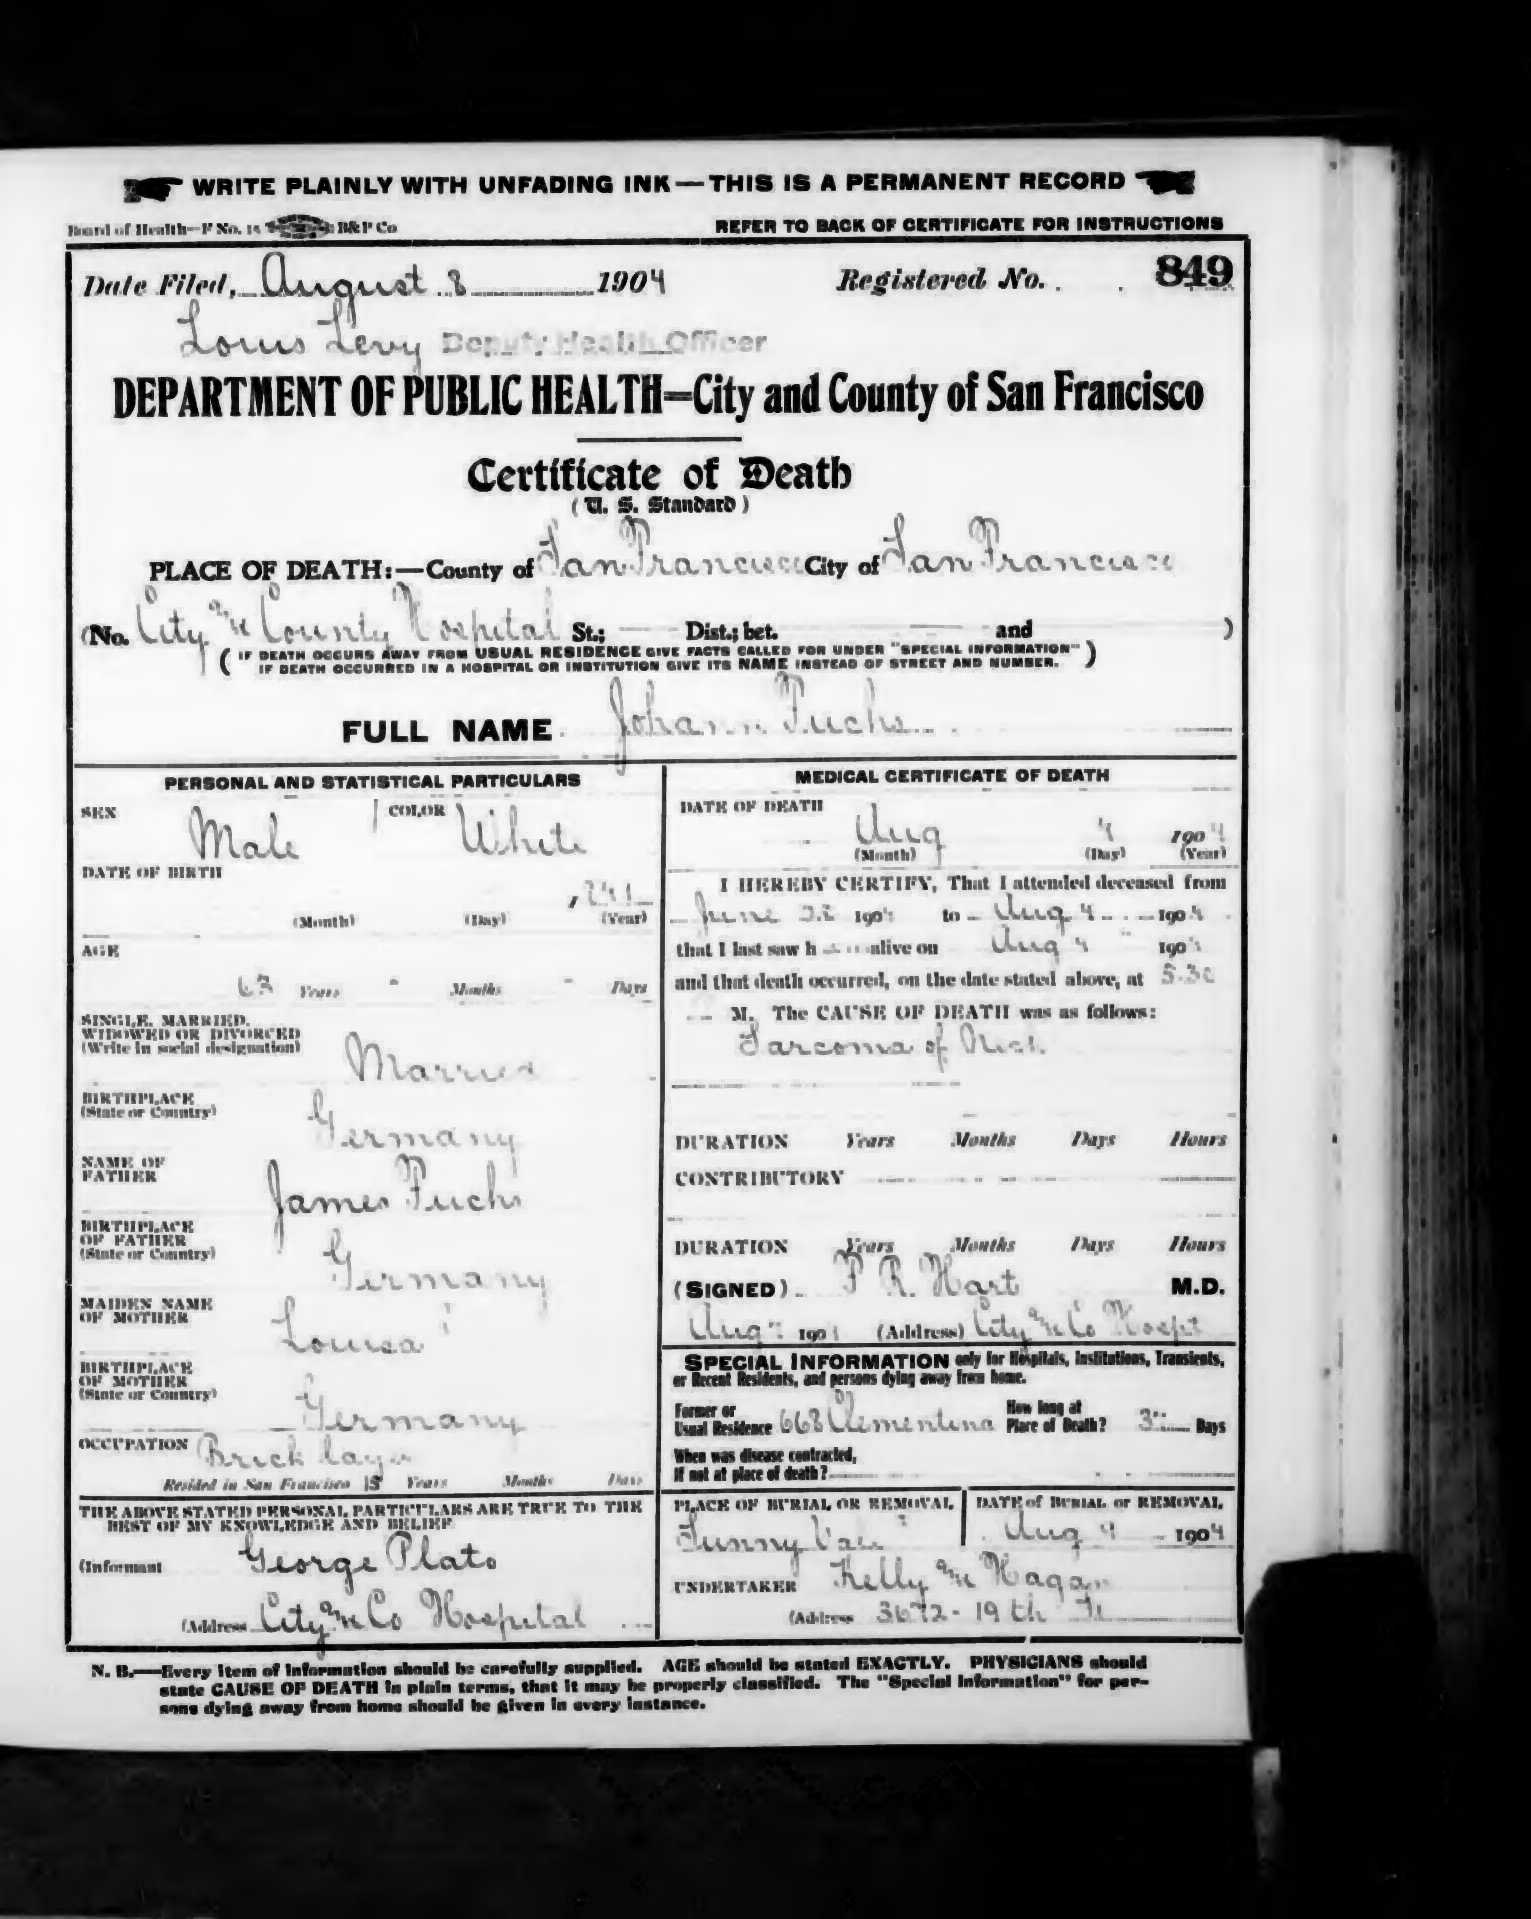 WRITE PLAINLY WITH UNFADING INK — THIS IS A PERMANENT RECORD
Board of Health—F No. 15 B&P Co REFER TO BACK OF CERTIFICATE FOR INSTRUCTIONS
Date Filed, August 8 1904 Registered No. 849
Louis Levy Deputy Health Officer
DEPARTMENT OF PUBLIC HEALTH=City and County of San Francisco
Certificate of Death
(U. S. Standard)
PLACE OF DEATH:—County of San Francisco City of San Francisco
(No. City and County Hospital St.; Dist.; bet. and )
(IF DEATH OCCURS AWAY FROM USUAL RESIDENCE GIVE FACTS CALLED FOR UNDER "SPECIAL INFORMATION"
IF DEATH OCCURRED IN A HOSPITAL OR INSTITUTION GIVE ITS NAME INSTEAD OF STREET AND NUMBER.)
FULL NAME Johann Fuchs
PERSONAL AND STATISTICAL PARTICULARS
SEX Male COLOR White
DATE OF BIRTH
(Month) (Day) (Year)
AGE
63 Years Months Days
SINGLE, MARRIED,
WIDOWED OR DIVORCED
(Write in social designation) Married
BIRTHPLACE
(State or Country) Germany
NAME OF
FATHER James Fuchs
BIRTHPLACE
OF FATHER
(State or Country) Germany
MAIDEN NAME
OF MOTHER Louisa
BIRTHPLACE
OF MOTHER
(State or Country) Germany
OCCUPATION Brick layer
Resided in San Francisco 15 Years Months Days
THE ABOVE STATED PERSONAL PARTICULARS ARE TRUE TO THE
BEST OF MY KNOWLEDGE AND BELIEF
(Informant George Plato
(Address City and Co Hospital
MEDICAL CERTIFICATE OF DEATH
DATE OF DEATH
Aug 4 1904
(Month) (Day) (Year)
I HEREBY CERTIFY, That I attended deceased from
June 1904 to Aug 4 1904
that I last saw h alive on Aug 4 1904
and that death occurred, on the date stated above, at 5.30
M. The CAUSE OF DEATH was as follows:
Sarcoma of Neck
DURATION Years Months Days Hours
CONTRIBUTORY
DURATION Years Months Days Hours
(SIGNED) F R. Hart M.D.
Aug 190 (Address) City and Co Hospt
SPECIAL INFORMATION only for Hospitals, Institutions, Transients,
or Recent Residents, and persons dying away from home.
Former or
Usual Residence 668 Clementina How long at
Place of Death? Days
When was disease contracted,
If not at place of death?
PLACE OF BURIAL OR REMOVAL DATE of BURIAL or REMOVAL
Sunny Vale Aug 1904
UNDERTAKER Kelly and Hagan
(Address 3672 - 19th St
N. B.—Every item of information should be carefully supplied. AGE should be stated EXACTLY. PHYSICIANS should
state CAUSE OF DEATH in plain terms, that it may be properly classified. The "Special Information" for per-
sons dying away from home should be given in every instance.